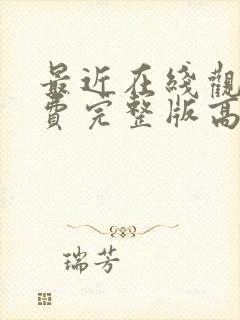 最近在线觀
费完整版高
瑞芳